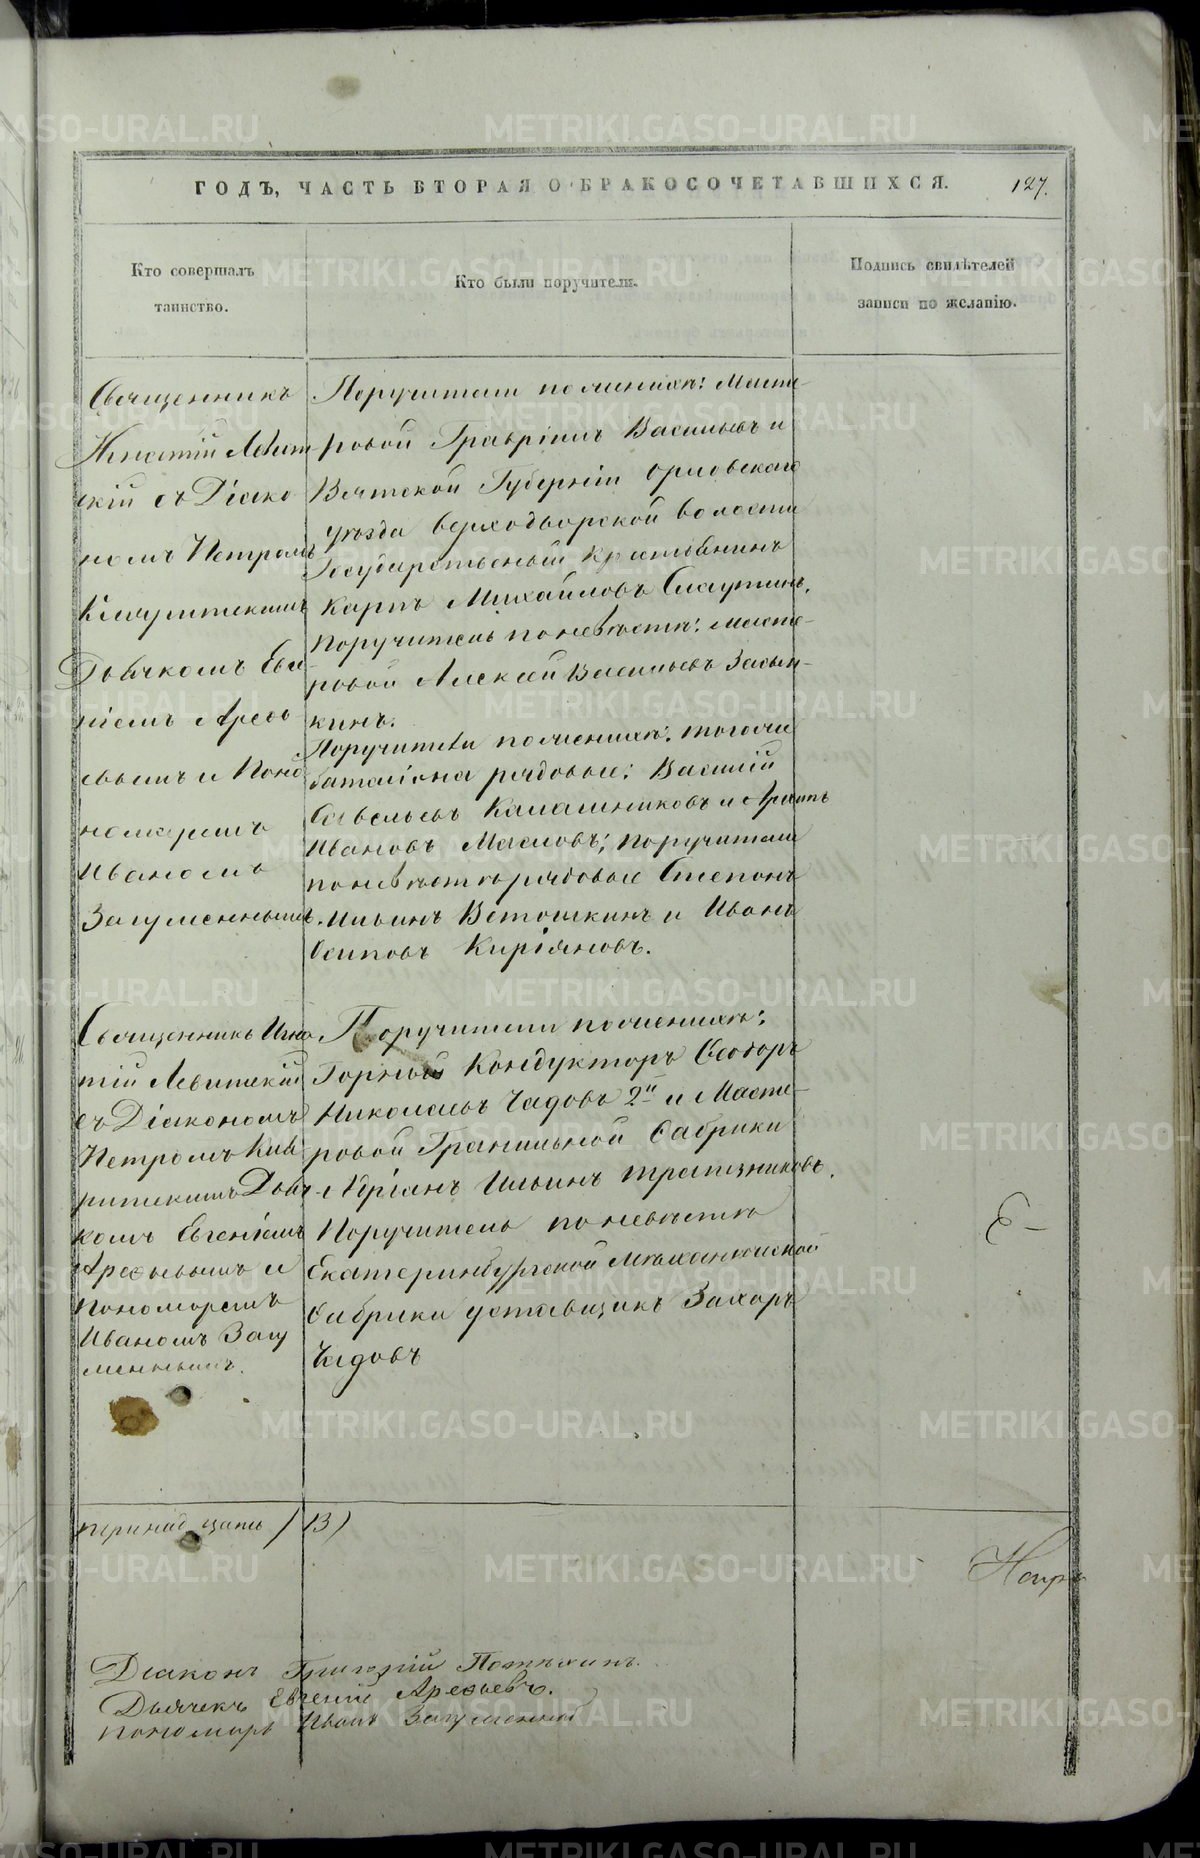 ГОДЪ, ЧАСТЬ ВТОРАЯ О БРАКОСОЧЕТАВШИХСЯ. 127.
Кто совершалъ
таинство.
Кто были поручители.
Подпись свидѣтелей
записи по желанію.
Священникъ
Игнатій Левит
скій съ Діако
номъ Петромъ
Дьячкомъ Евге
ніемъ Арефь
евымъ и Поно
номаремъ
Иваномъ
Загуменнымъ.
Поручители по женихѣ: Масте-
ровой Гаврiилъ Васильевъ и
Вятской Губерніи Орловскаго
уѣзда Верходворской волости
Государственный крестьянинъ
Карпъ Михайловъ
Поручитель по невѣстѣ: масте-
ровой Алексѣй Васильевъ
кинъ.
Поручители по женихѣ: тогожъ
баталіона рядовые: Василій
Савельевъ Калашниковъ и
Ивановъ Масловъ; поручители
по невѣстѣ рядовые Степанъ
Ильинъ Ветошкинъ и Иванъ
Осиповъ Киріяновъ.
Священникъ Игна
тій Левитскій
съ Діакономъ
Петромъ
Дьяч
комъ Евгеніемъ
Арефьевымъ и
Пономаремъ
Иваномъ Загу
меннымъ.
Поручители по женихѣ:
Горный Кондукторъ Ѳеодоръ
Николаевъ Чадовъ 2й и Масте-
ровой Гранильной Фабрики
Адріанъ Ильинъ Трапезниковъ.
Поручитель по невѣстѣ
Екатеринбургской Механической
Фабрики уставщикъ Захаръ
Чадовъ
тринадцать (13)
Діаконъ Григорій
Дьячекъ Евгеній Арефьевъ.
Пономарь Иванъ Загуменный
METRIKI.GASO-URAL.RU